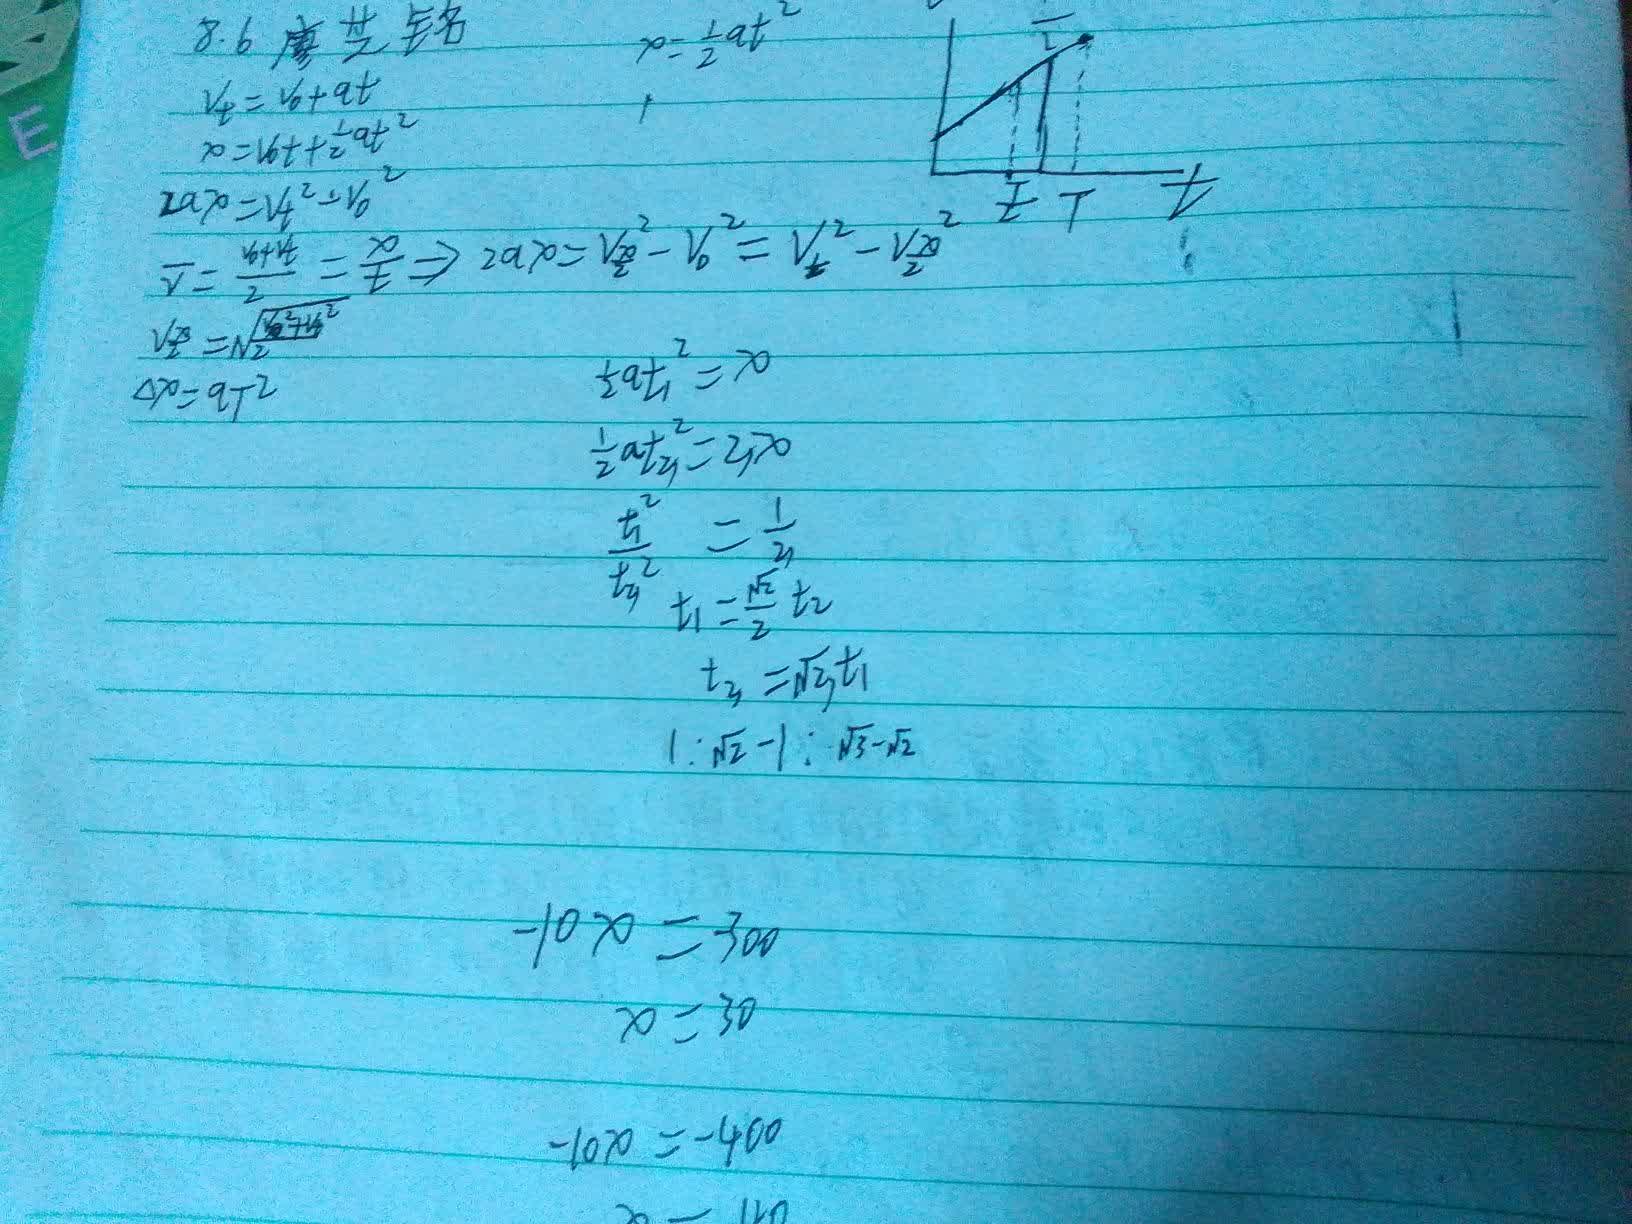 8.6
x=½at²
Vt=V0+at
x=V0t+½at²
2ax=Vt²-V0²
V̄=(V0+Vt)/2=x/t ⇐ 2ax=Vx/2²-V0²=Vt²-Vx/2²
Vx/2=√(V0²+Vt²)/2
Δx=aT²
t
½at1²=x
½at3²=3x
t1²/t3²=1/3
t1=√2/2 t2
t3=√3t1
1:√2-1:√3-√2
-10x=300
x=30
-10x=-400
E